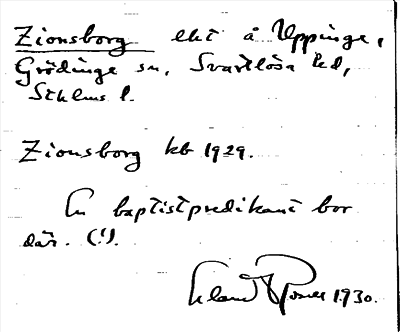 Zionsborg lht å Uppinge,
Grödinge sn, Svartlösa hd,
Sthlms l.
Zionsborg kb 1929.
En baptistpredikant bor
där. (!).
1930.